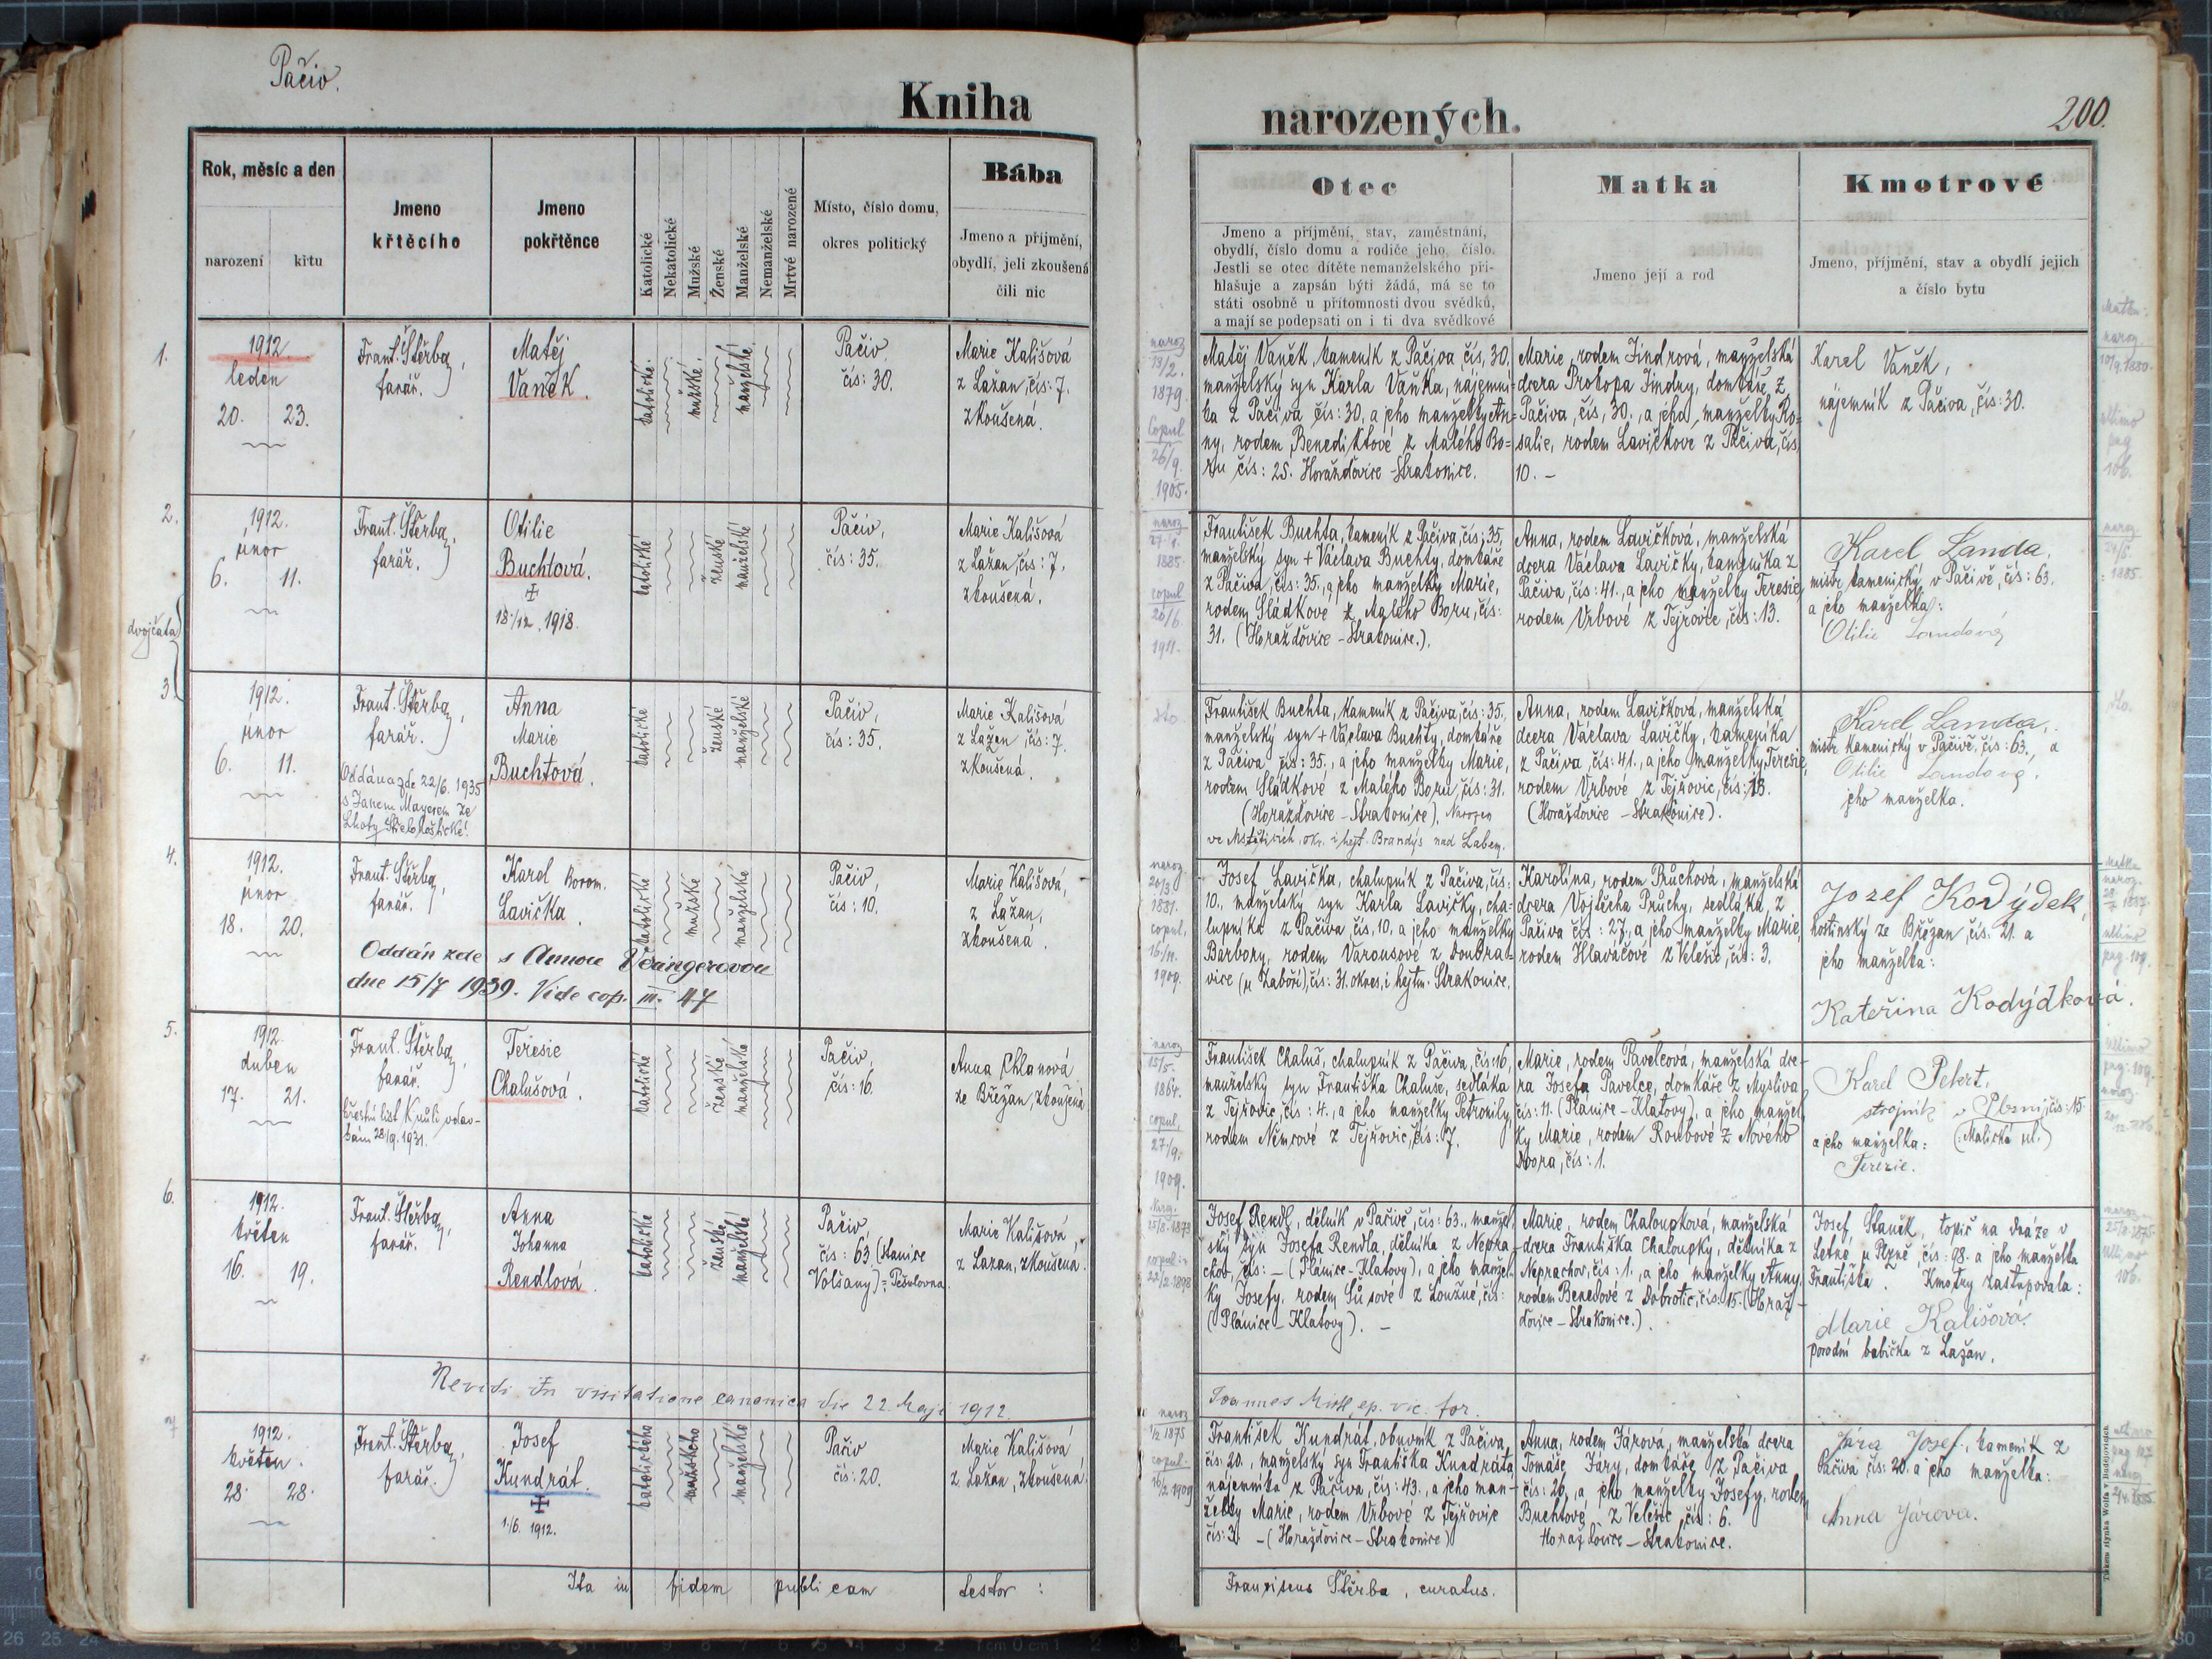 Pačiv.
Kniha
narozených.
200.
Rok, měsíc a den
narození
křtu
Jmeno
křtěcího
Jmeno
pokřtěnce
Katolické
Nekatolické
Mužské
Ženské
Manželské
Nemanželské
Mrtvé narozené
Místo, číslo domu,
okres politický
Bába
Jmeno a přijmění,
obydlí, jeli zkoušená
čili nic
Otec
Jmeno a příjmění, stav, zaměstnání,
obydlí, číslo domu a rodiče jeho, číslo.
Jestli se otec dítěte nemanželského při-
hlašuje a zapsán býti žádá, má se to
státi osobně u přítomnosti dvou svědků,
a mají se podepsati on i ti dva svědkové
Matka
Jmeno její a rod
Kmotrové
Jmeno, příjmění, stav a obydlí jejich
a číslo bytu
1.
1912.
leden
20. 23.
Frant. Štěrba,
farář.
Matěj
Vaněk.
katolické.
mužské.
manželské.
Pačiv,
čís: 30.
Marie Kališová
z Lažan, čís: 7.
zkoušená.
naroz
13/2.
1879.
Copul
26/9.
1905.
Matěj Vaněk, kameník z Pačiva, čís, 30.
manželský syn Karla Vaňka, nájemní-
ka z Pačiva čís: 30, a jeho manželky An=
ny, rodem Benediktové z Malého Bo=
ru čís: 25. Horažďovice - Strakonice.
Marie, rodem Jindrová, manželská
dcera Prokopa Jindry, domkáře z
Pačiva, čís, 30., a jeho manželky Ro=
salie, rodem Lavičkove z Pačiva, čís
10. -
Karel Vaněk,
nájemník z Pačiva, čís: 30.
Matka:
naroz.
10/9. 1880.
ultimo
pag
106.
2.
1912.
únor
6. 11.
Frant. Štěrba,
farář.
Otilie
Buchtová.
18./12. 1918.
katolické
ženské
manželské
Pačiv,
čís: 35.
Marie Kališová
z Lažan, čís: 7.
zkoušená.
naroz
27. 1.
1885.
copul
20/6.
1911.
František Buchta, kameník z Pačiva, čís: 35,
manželský syn + Václava Buchty, domkáře
z Pačiva, čís: 35., a jeho manželky Marie,
rodem Sládkové z Malého Boru, čís:
31. (Horažďovice - Strakonice.).
Anna, rodem Lavičková, manželská
dcera Václava Lavičky, kameníka z
Pačiva, čís: 41., a jeho manželky Teresie,
rodem Vrbové z Tejřovic, čís: 13.
Karel Landa,
mistr kamenický v Pačivě, čís: 63.
a jeho manželka:
Otilie Landova
naroz
24/5.
1885.
dvojčata
3.
1912.
únor
6. 11.
Frant. Štěrba,
farář.
Oddána zde 22/6. 1935
s Janem Mayerem ze
Lhoty
Anna
Marie
Buchtová.
katolické
ženské
manželské
Pačiv,
čís: 35.
Marie Kališová
z Lažan, čís: 7.
zkoušená.
dto.
František Buchta, kameník z Pačiva, čís: 35.,
manželský syn + Václava Buchty, domkáře
z Pačiva čís: 35., a jeho manželky Marie,
rodem Sládkové z Malého Boru, čís: 31.
(Horažďovice - Strakonice). Narozen
ve Mstěticích, okr. i hejt. Brandýs nad Labem.
Anna, rodem Lavičková, manželská
dcera Václava Lavičky, kameníka
z Pačiva, čís: 41., a jeho manželky Teresie,
rodem Vrbové z Tejřovic, čís: 13.
(Horažďovice - Strakonice).
Karel Landa,
mistr kamenický v Pačivě, čís: 63., a
Otilie Landova,
jeho manželka.
dto.
4.
1912.
únor
18. 20.
Frant. Štěrba,
farář.
Karel Borom.
Lavička
katolické
mužské
manželské
Pačiv,
čís: 10.
Marie Kališová,
z Lažan,
zkoušená.
Oddán zde s Annou Veaingerovou
dne 15/7 1939. Vide cop. III. 47
naroz.
20/3
1881.
copul.
16/11.
1909.
Josef Lavička, chalupník z Pačiva, čís:
10., manželský syn Karla Lavičky, cha-
lupníka z Pačiva čís, 10. a jeho manželky
Barbory, rodem Varousové z Doubra-
vice (u Záboří), čís: 31. okres, i hejtm. Strakonice.
Karolína, rodem Průchová, manželská
dcera Vojtěcha Průchy, sedláka z
Pačiva čís: 27., a jeho manželky Marie,
rodem Hlaváčové z Velešic, čís: 3.
Jozef Kodýdek,
hostinský ze Břežan, čís: 21. a
jeho manželka:
Kateřina Kodýdková.
Matka
naroz.
28/7 1887.
ultimo
pag. 109.
5.
1912.
duben
17. 21.
Frant. Štěrba,
farář.
křestní list k
28/9. 1931.
Teresie
Chalušová.
katolické
ženské
manželské
Pačiv,
čís: 16.
Anna Chlanová
ze Břežan, zkoušená
naroz
15/5.
1864.
copul,
27/9.
1909.
František Chaluš, chalupník z Pačiva, čís: 16,
manželský syn Františka Chaluše, sedláka
z Tejřovic, čís: 4., a jeho manželky Petronily,
rodem Němcové z Tejřovic, čís: 17.
Marie, rodem Pavelcová, manželská dce-
ra Josefa Pavelce, domkáře z Mysliva
čís: 11. (Plánice - Klatovy), a jeho manžel-
ky Marie, rodem Roubové z Nového
Dvora, čís: 1.
Karel Petert,
strojník v Plzni, čís: 15
a jeho manželka: (:Malická ul.)
Terezie.
Ultimo
pag: 109.
naroz.
6.
1912.
květen
16. 19.
Frant. Štěrba,
farář.
Anna
Johanna
Rendlová.
katolické
ženské
manželské
Pačiv,
čís: 63. (Hanice
Volšany)
Marie Kališová,
z Lažan, zkoušená.
Narz.
25/8. 1873
copul:
22/2. 1898
Josef Rendl, dělník v Pačivě, čís: 63., manžel-
ský syn Josefa Rendla, dělníka z Nepra-
chov čís: - (Plánice - Klatovy), a jeho manžel-
ky Josefy, rodem Šůsové z Loužné, čís:
(Plánice - Klatovy). -
Marie, rodem Chaloupková, manželská
dcera Františka Chaloupky, dělníka z
Neprachov, čís: 1., a jeho manželky Anny,
rodem Benešové z Dobrotic, čís: 15. (Horaž-
ďovice - Strakonice.).
Josef Staněk, topič na dráze v
Letné u Plzně, čís. 98. a jeho manželka
Františka. Kmotry zastupovala:
Marie Kališová.
porodní babička z Lažan.
naroz.
25/8. 1875
Ultimo
106.
Revidi in visitatione canonica die 22. Maji 1912.
Joannes ep. vic. for.
7
1912.
květen.
28. 28.
Frant. Štěrba,
farář.
Josef
Kundrát.
1./6. 1912.
katolického
mužského
manželské
Pačiv
čís: 20.
Marie Kališová
z Lažan, zkoušená.
naroz
1/12 1875
copul.
16/2. 1909
František Kundrát, obuvník z Pačiva,
čís: 20., manželský syn Františka Kundráta
nájemníka z Pačiva, čís: 43., a jeho man-
želky Marie, rodem Vrbové z Tejřovic
čís: 3. - (Horažďovice - Strakonice)
Anna, rodem Járová, manželská dcera
Tomáše Járy, domkáře z Pačiva
čís: 26., a jeho manželky Josefy, rodem
Buchtové z Velešic, čís: 6.
Horažďovice - Strakonice.
Jára Josef, kameník z
Pačiva čís: 20. a jeho manželka:
Anna Járova.
ultimo
pag 107
naroz
Ita in fidem publicam testor:
Franciscus Štěrba, curatus.
Tiskem Zdyňka Wolfa v Budějovicích